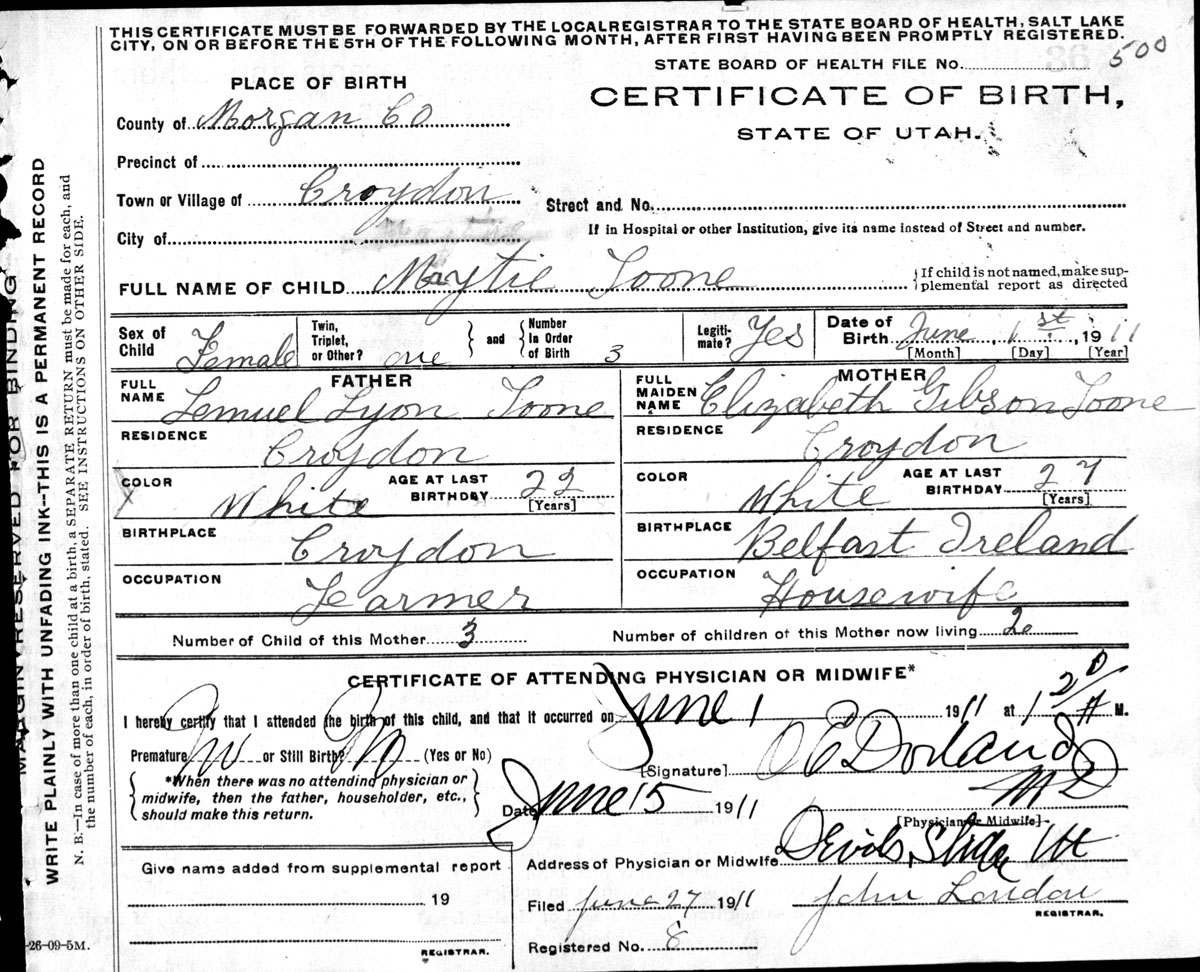 THIS CERTIFICATE MUST BE FORWARDED BY THE LOCAL REGISTRAR TO THE STATE BOARD OF HEALTH, SALT LAKE
CITY, ON OR BEFORE THE 5TH OF THE FOLLOWING MONTH, AFTER FIRST HAVING BEEN PROMPTLY REGISTERED.
STATE BOARD OF HEALTH FILE No. 500
PLACE OF BIRTH
CERTIFICATE OF BIRTH,
STATE OF UTAH.
County of Morgan CO
Precinct of
Town or Village of Croydon
Street and No.
City of
If in Hospital or other Institution, give its name instead of Street and number.
FULL NAME OF CHILD Maytie Toone
{If child is not named, make sup-
plemental report as directed
Sex of Child Female
Twin, Triplet, or Other? one } and { Number in Order of Birth 3
Legiti-mate? Yes
Date of Birth June 1st, 1911
[Month] [Day] [Year]
FATHER
MOTHER
FULL NAME Lemuel Lyon Toone
FULL MAIDEN NAME Elizabeth Gibson Toone
RESIDENCE Croydon
RESIDENCE Croydon
COLOR White AGE AT LAST BIRTHDAY 22 [Years]
COLOR White AGE AT LAST BIRTHDAY 27 [Years]
BIRTHPLACE Croydon
BIRTHPLACE Belfast Ireland
OCCUPATION Farmer
OCCUPATION Housewife
Number of Child of this Mother 3
Number of children of this Mother now living 2
CERTIFICATE OF ATTENDING PHYSICIAN OR MIDWIFE*
I hereby certify that I attended the birth of this child, and that it occurred on June 1 1911 at 1 20 A M.
Premature No or Still Birth? No (Yes or No)
*When there was no attending physician or
midwife, then the father, householder, etc.,
should make this return.
[Signature] O E Dorland
M D
Date June 15 1911
[Physician or Midwife]
Address of Physician or Midwife Devils Slide Ut
Give name added from supplemental report
19
Filed June 27 1911 John London
REGISTRAR.
Registered No. 8
REGISTRAR.
MARGIN RESERVED FOR BINDING
WRITE PLAINLY WITH UNFADING INK--THIS IS A PERMANENT RECORD
N. B.—In case of more than one child at a birth, a SEPARATE RETURN must be made for each, and
the number of each, in order of birth, stated. SEE INSTRUCTIONS ON OTHER SIDE.
-26-09-5M.